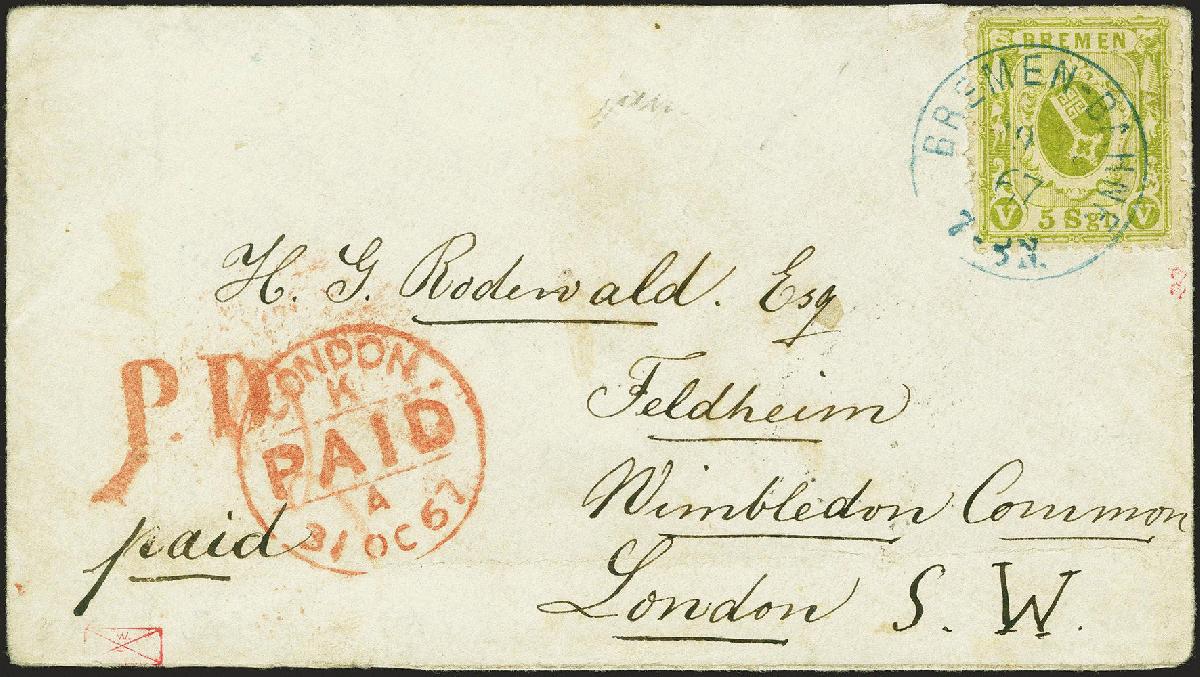 BREMEN
V 5 Sgr V
BREMEN-BAHNHF
67
H. G. Rodewald. Esq
Feldheim
Wimbledon Common
London S. W.
P.D
LONDON
K
PAID
A
31 OC 67
paid
W